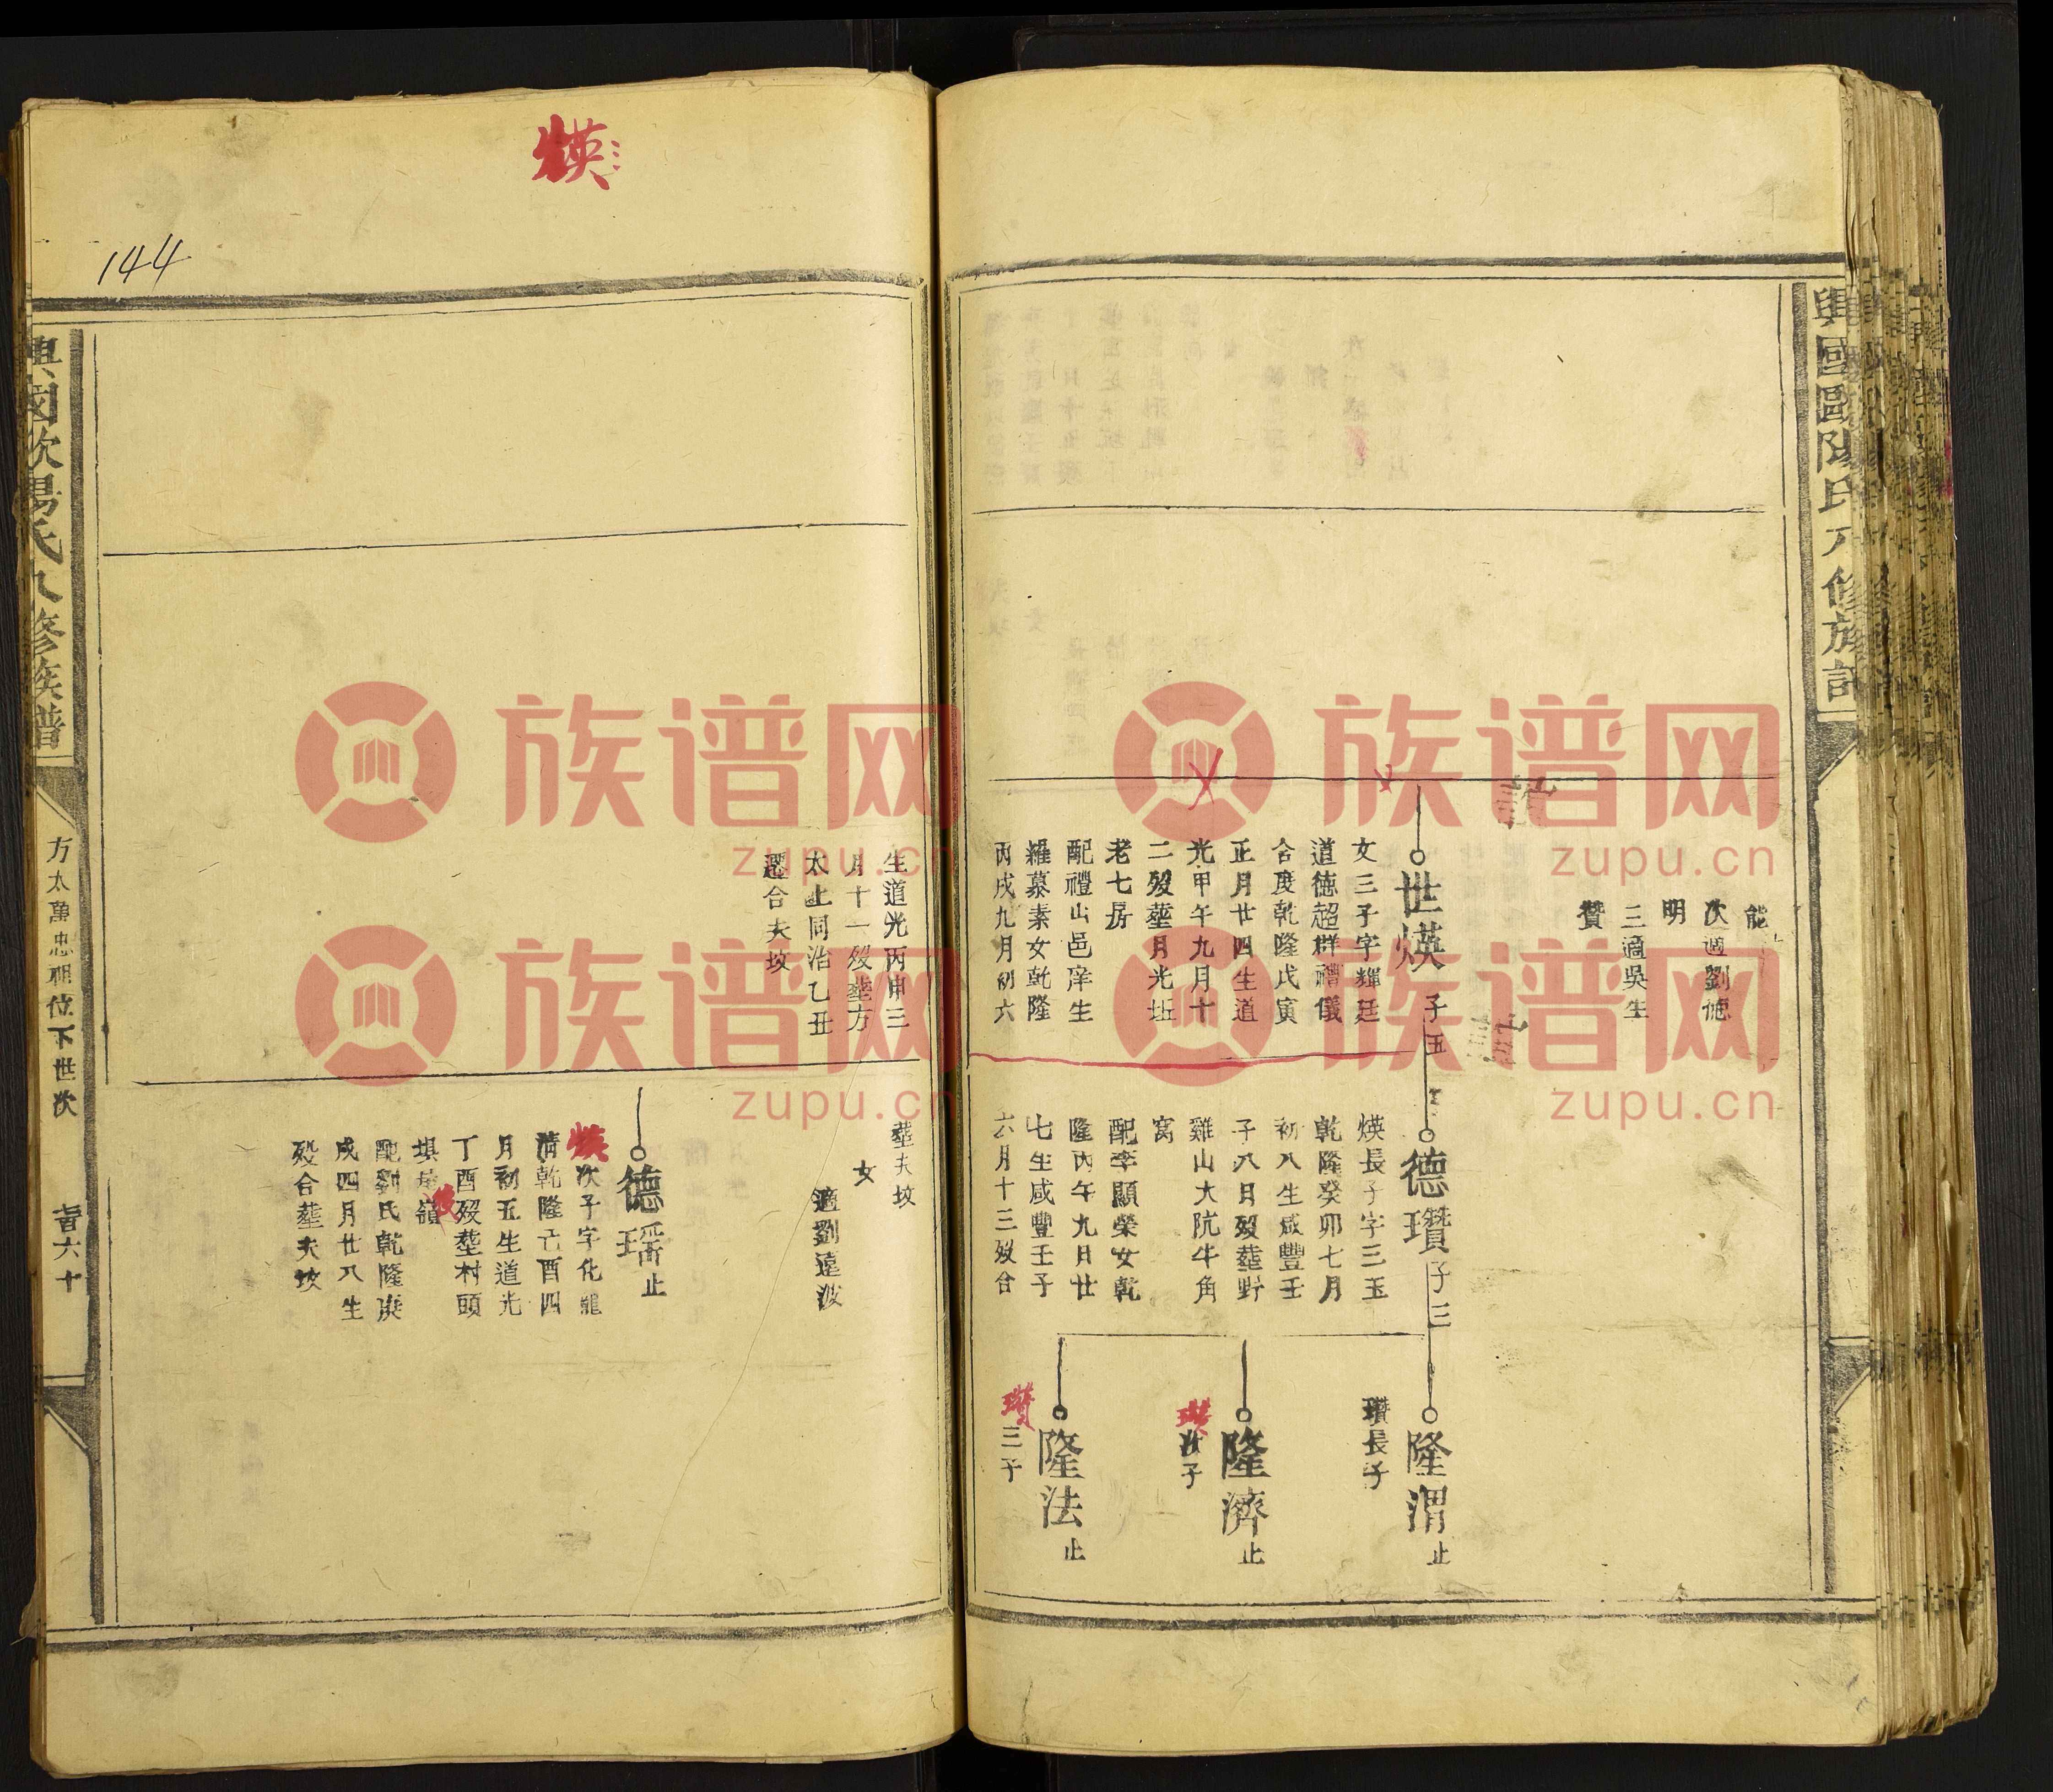 興國歐陽氏八修族譜
能
次適劉德
明
三適吳生
贊
世煐 子五
女三子字輝廷
道德超群禮儀
合度乾隆戊寅
正月廿四生道
光甲午九月十
二歿塟月光坵
老七房
配禮山邑庠生
羅慕素女乾隆
丙戌九月初六
德瓚 子三
煐長子字三玉
乾隆癸卯七月
初八生咸豐壬
子八月歿塟野
雞山大阬牛角
窩
配李顯榮女乾
隆丙午九月廿
七生咸豐壬子
六月十三歿合
隆渭 止
瓚長子
隆濟 止
瓚次子
隆法 止
瓚三子
煐
144
生道光丙申三
月十一歿塟方
太止同治乙丑
遷合夫坟
塟夫坟
女
適劉遠波
德瑶 止
煐次子字化龍
清乾隆己酉四
月初五生道光
丁酉歿塟村頭
嶺
配劉氏乾隆庚
戌四月廿八生
歿合塟夫坟
興國歐陽氏八修族譜
方太萬忠祖位下世次
六十
族谱网
zupu.cn
族谱网
zupu.cn
族谱网
zupu.cn
族谱网
zupu.cn